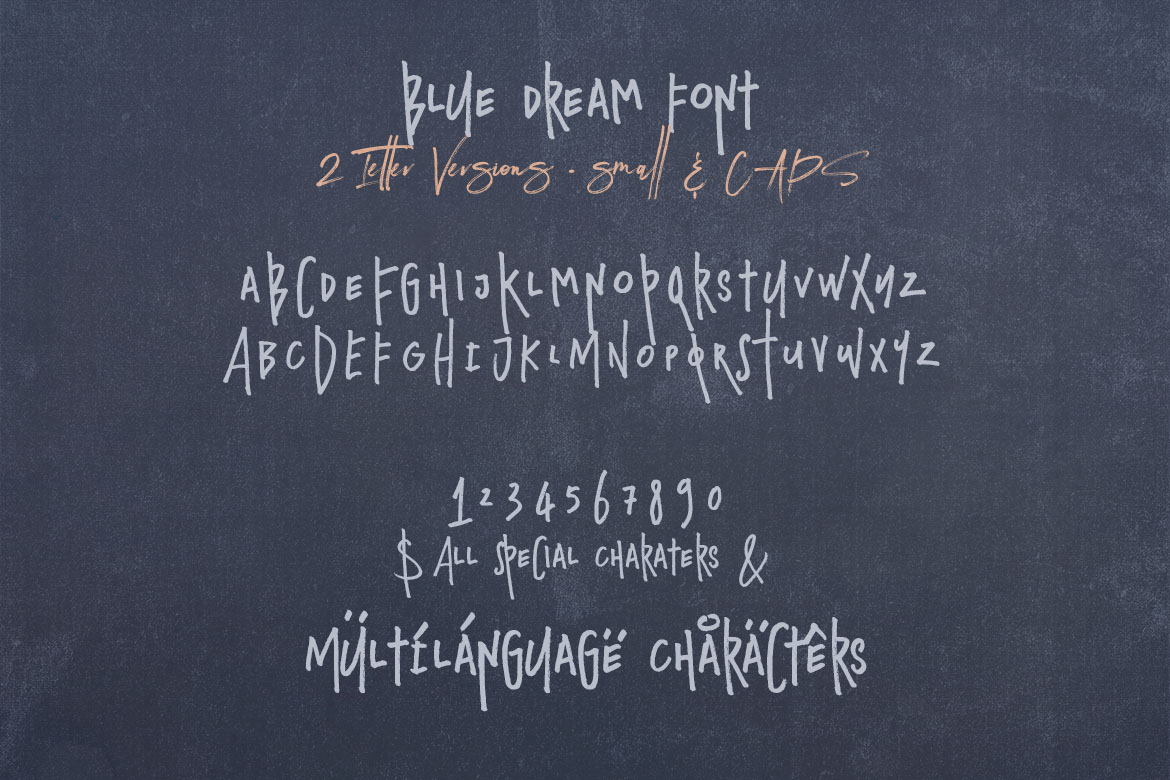 BLUE DREAM FONT
2 letter Versions · small & CAPS
ABCDEFGHIJKLMNOPQRSTUVWXYZ
ABCDEFGHIJKLMNOPQRSTUVWXYZ
1234567890
$ ALL SPECIAL CHARATERS &
MÜLTÍLÁNGUAGË CHÅRÄCTÊRS